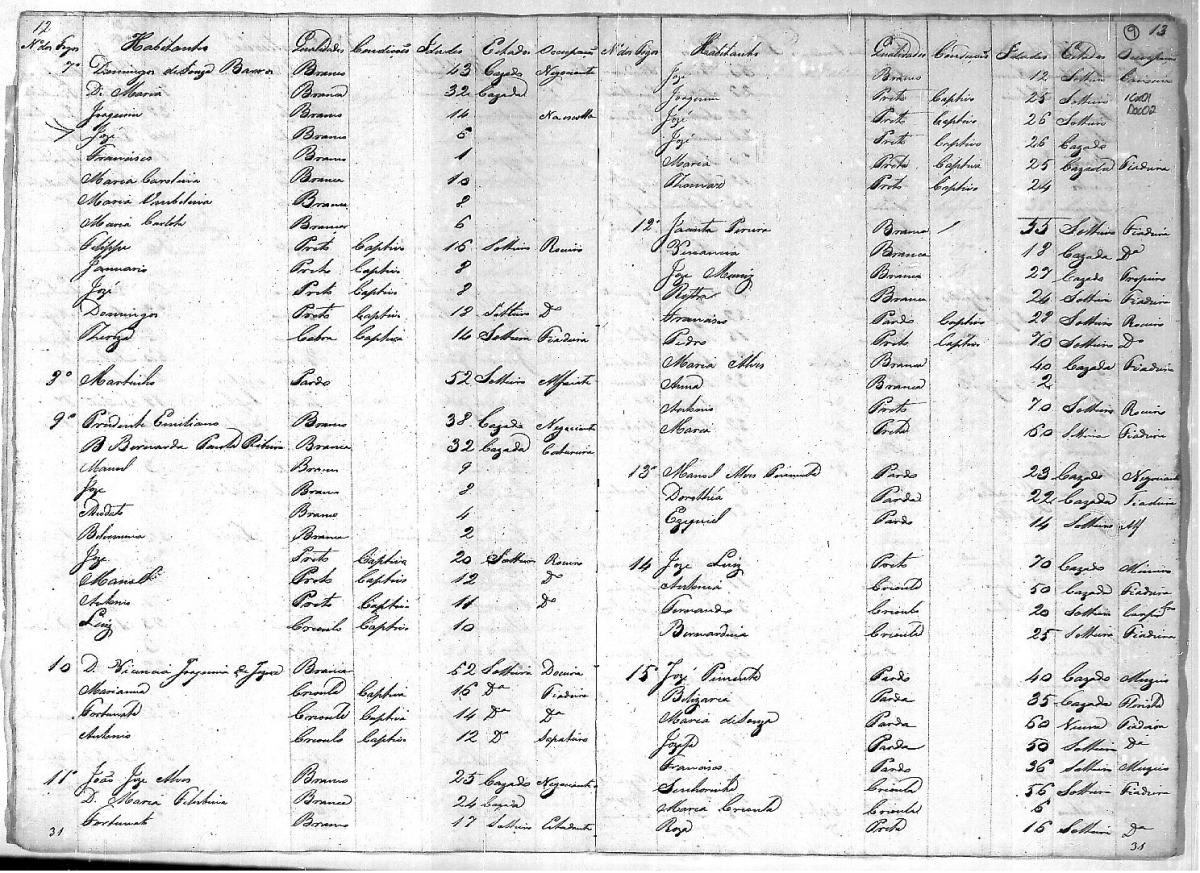 12
Nos dos Fogos Habitantes Qualidades Condição Idades Estados Occupação
7º Domingos de Souza Barros Branco 43 Cazado Negociante
D. Maria Branca 32 Cazada
Joaquim Branco 14 Na escolla
Jozé Branco 5
Francisco Branco 1
Maria Carolina Branca 10
Maria Umbelina Branca 8
Maria Carlota Branca 6
Felippe Preto Captivo 16 Solteiro Roceiro
Januario Preto Captivo 8
Jozé Preto Captivo 8
Domingos Preto Captivo 19 Solteiro Dº
Thereza Cabra Captiva 14 Solteira Fiadeira
8º Martinho Pardo 52 Solteiro Alfaiate
9º Prudente Emiliano Branco 38 Cazado Negociante
D Bernarda Ribeira Branca 32 Cazada Costureira
Manoel Branco 9
Joze Branco 8
Branco 4
Branca 2
Joze Preto Captivo 20 Solteiro Roceiro
Manoel Preto Captivo 12 Dº
Antonio Preto Captivo 11 Dº
Luiz Crioulo Captivo 10
10 D. Vicencia Joaquina de Branca 52 Solteira
Marianna Crioula Captiva 16 Dª Fiadeira
Fortunata Crioula Captiva 14 Dª Dª
Antonio Crioulo Captivo 12 Dº Sapateiro
11º João Joze Alves Branco 25 Cazado Negociante
D. Maria Branca 24 Cazada
Fortunato Branco 17 Solteiro Estudante
31
9 13
Nos dos Fogos Habitantes Qualidades Condição Idades Estados Occupação
Joze Branco 12 Solteiro
Joaquim Preto Captivo 25 Solteiro
Jozé Preto Captivo 26 Solteiro
Jozé Preto Captivo 26 Cazado
Maria Preta Captiva 25 Cazada Fiadeira
Thomaz Preto Captivo 24
12º Jacinta Pereira Branca 55 Solteira Fiadeira
Venancia Branca 18 Cazada Dª
Joze Muniz Branco 27 Cazado Tropeiro
Branca 24 Solteira Fiadeira
Francisco Pardo Captivo 22 Solteiro Roceiro
Pedro Preto Captivo 70 Solteiro Dº
Maria Alves Branca 40 Cazada Fiadeira
Anna Branca 2
Antonio Preto 70 Solteiro Roceiro
Maria Preta 60 Solteira Fiadeira
13º Manoel Alves Pimenta Pardo 23 Cazado Negociante
Dorothia Parda 22 Cazada Fiadeira
Ezequiel Pardo 14 Solteiro Alf
14 Joze Luiz Preto 70 Cazado Mineiro
Antonia Crioula 50 Cazada Fiadeira
Fernando Crioulo 20 Solteiro
Bernardina Crioula 25 Solteira Fiadeira
15º Jozé Pimenta Pardo 40 Cazado Muzico
Belizaria Parda 35 Cazada
Maria de Souza Parda 60 Viuva Fiadeira
Jozefa Parda 50 Solteira Dª
Francisco Pardo 36 Solteiro Muzico
Senhorinha Crioula 56 Solteira Fiadeira
Maria Crioula Crioula 6
Roza Preta 16 Solteira Dª
31